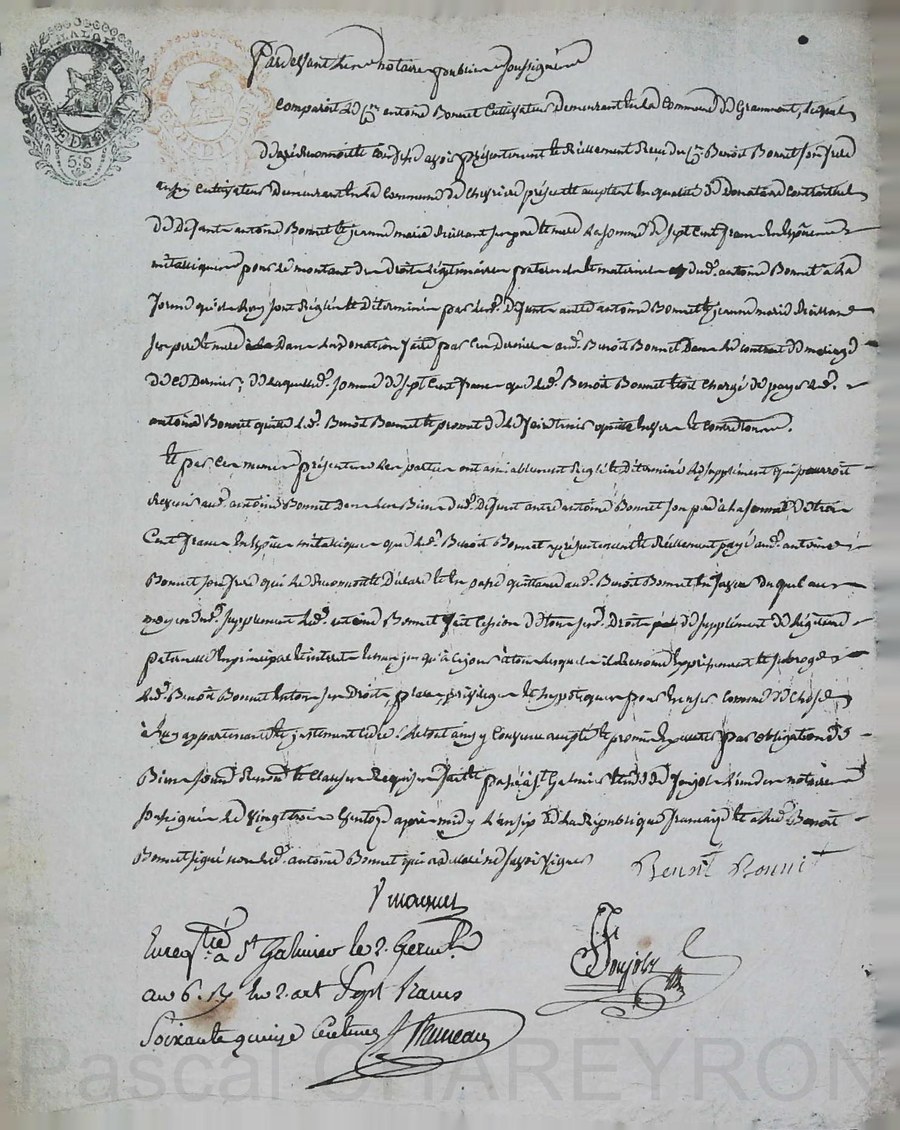 Pardevant les notaires publics soussignés
Comparoit le Cen antoine Bonnet Cultivateur demeurant en la Commune de Grammont, lequel
de gré reconnoit et confesse avoir présentement et réellement reçu du Cen Benoit Bonnet son frere
aussy cultivateur demeurant en la Commune de Chevrieres présent et acceptant en qualité de donataire contractuel
de défunts antoine Bonnet et jeanne marie ses pere et mere la somme de sept Cent francs en especes
métalliques pour le montant des droits légitimaires paternels et maternels dud. antoine Bonnet a la
forme qu'ils sont réglés et déterminés par lesd. défunts autre antoine Bonnet et jeanne marie
ses pere et mere dans la donation faite par ces derniers aud. Benoit Bonnet dans le contrat de mariage
de ce dernier, de laquelle somme de sept Cent francs que led. Benoit Bonnet étoit chargé de payer led.
antoine Bonnet quitte led. Benoit Bonnet et promet de le faire tenir quitte envers et contre tous.
Et par ces memes présentes les parties ont amiablement réglé et déterminé le supplément qui pourroit
revenir aud. antoine Bonnet dans les Biens dud. défunt autre antoine Bonnet son pere a la somme de trois
Cent francs en especes métalliques que led. Benoit Bonnet a présentement et réellement payé aud. antoine
Bonnet son frere qui le reconnoit et déclare et en passe quittance aud. Benoit Bonnet en faveur duquel au
moyen dud. supplément led. antoine Bonnet fait cession de tous ses droits de supplément de légitime
paternelle en principal et intérêts jusqu'à ce jour à tous lesquels il renonce expressement et subroge
led. Benoit Bonnet en tous ses droits, places, privileges et hypotheques pour en user comme de chose
à luy appartenante et justement cédée. le tout ainsy convenu accepté et promis exécuter par obligation de
Biens, soumis. renon. et clauses requises fait et passé à St Galmier étude de Joujolz l'un des notaires
soussignés le vingt trois ventose après midy l'an six de la République française et a led. Benoit
Bonnet signé non led. antoine Bonnet qui a déclaré ne savoir signer
Benoit Bonnit
Enregtré à St Galmier le 2. Germal
an 6. Rç en 2. art Sept francs
Soixante quinze Centimes
Joujolz
Pascal CHAREYRON